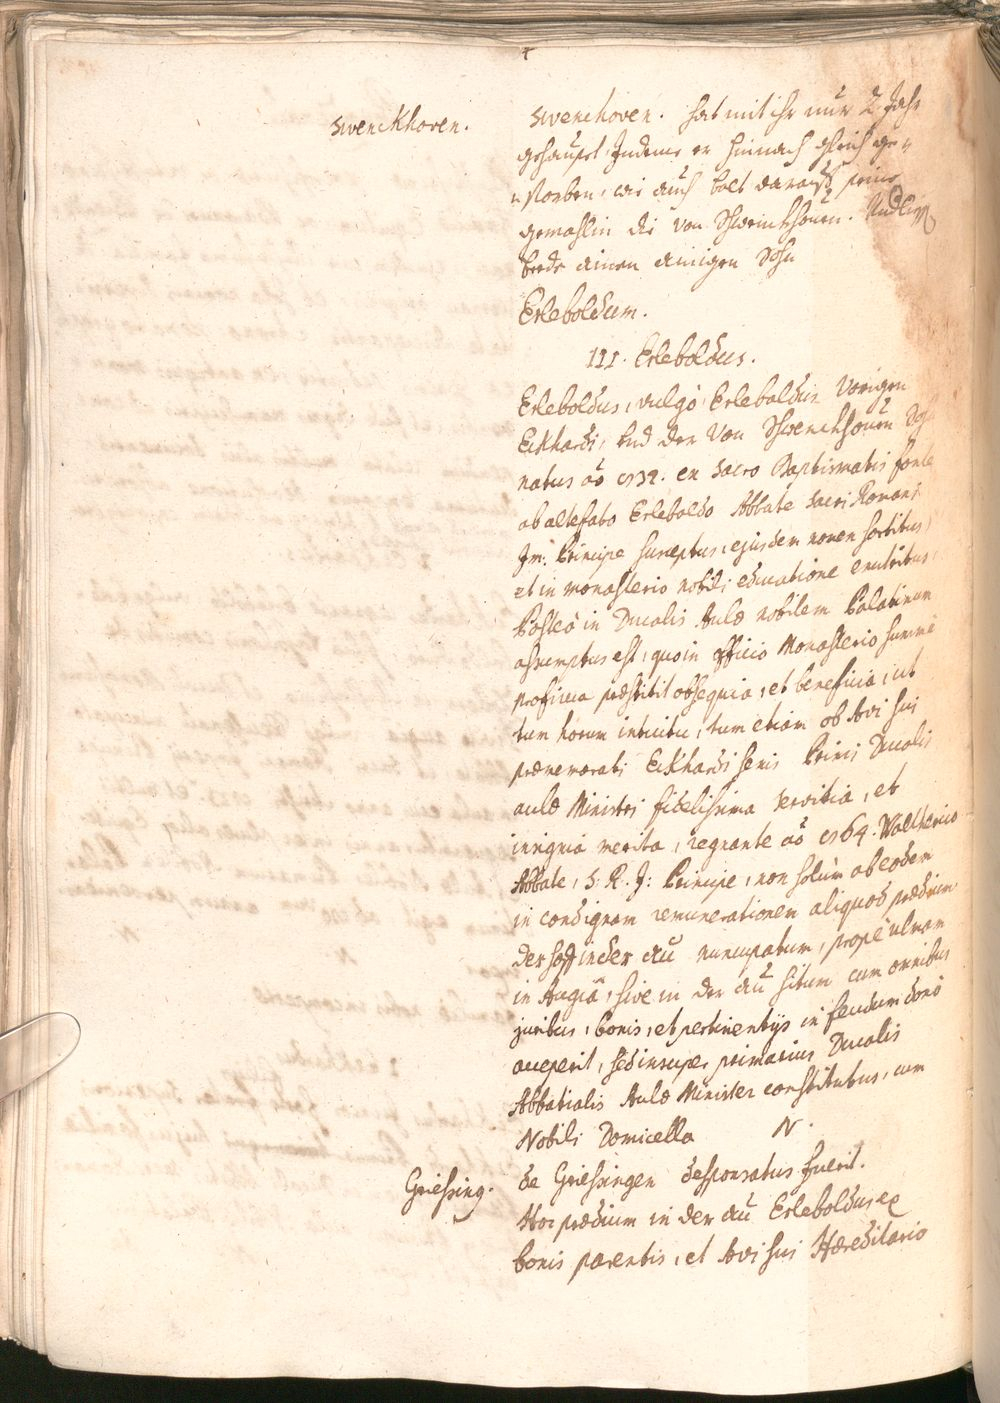 4
Swenckhoven.
Swenchoven. hat mit ihr nur 2 Jahr
gehauset. Indeme er hirnach gleich ge-
storben, wie auch balt darauff seine
gemahlin die von Schweinkhouen. Undlings
beede ainen ainigen Sohn
Erleboldum.
III. Erleboldus.
Erleboldus, vulgò Erleboldus Vorigen
Eckhardi, und der von Schwenckhouen Sohn
natus aō 1134. ex sacro Baptismatis fonte
ab altefato Erleboldo Abbate Sacri Romani
Im: Principe susceptus, ejusdem nomen sortitus,
et in monasterio nobili educatione enutritus,
Posteà in Ducalis Aulæ nobilem Palatinum
assumptus est, quo in officio Monasterio summè
proficua præstitit obsequia, et beneficia, ut
tum horum intuitu, tum etiam ob Avi sui
præmemorati Eckhardi senis Primi Ducalis
aulæ Ministri fidelissima servitia, et
insignia merita, regnante aō 1164. Walthario
Abbate, S. R. I: Principe, non solùm ab eodem
in condignam remunerationem aliquod prædium
der hoff in der au nuncupatum, propè ulmam
in Augiâ, sive in der au situm cum omnibus
juribus, bonis, et pertinentijs in feudum donò
acceperit, sed insuper primarius Ducalis
Abbatialis Aulæ Minister constitutus, cum
Nobili Domicella N.
Griessing.
de Griessingen desponsatus fuerit.
Hoc prædium in der au Erleboldus ex
bonis parentis, et Avi sui Hæreditario